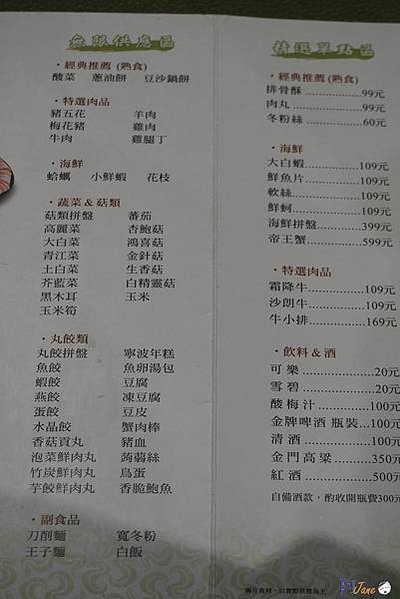 無限供應區
·經典推薦 (熟食)
酸菜 蔥油餅 豆沙鍋餅
·特選肉品
豬五花 羊肉
梅花豬 雞肉
牛肉 雞腿丁
·海鮮
蛤蠣 小鮮蝦 花枝
·蔬菜&菇類
菇類拼盤 蕃茄
高麗菜 杏鮑菇
大白菜 鴻喜菇
青江菜 金針菇
土白菜 生香菇
芥藍菜 白精靈菇
黑木耳 玉米
玉米筍
·丸餃類
丸餃拼盤 寧波年糕
魚餃 魚卵湯包
蝦餃 豆腐
燕餃 凍豆腐
蛋餃 豆皮
水晶餃 蟹肉棒
香菇貢丸 豬血
泡菜鮮肉丸 蒟蒻絲
竹炭鮮肉丸 鳥蛋
芋餃鮮肉丸 香脆鮑魚
·副食品
刀削麵 寬冬粉
王子麵 白飯
精選單點區
·經典推薦 (熟食)
排骨酥............99元
肉丸................99元
冬粉絲............60元
·海鮮
大白蝦............109元
鮮魚片............109元
軟絲................109元
鮮蚵................109元
海鮮拼盤........399元
帝王蟹............599元
·特選肉品
霜降牛............109元
沙朗牛............109元
牛小排............169元
·飲料&酒
可樂................20元
雪碧................20元
酸梅汁............100元
金牌啤酒 瓶裝...100元
清酒................100元
金門高粱........350元
紅酒................500元
自備酒款，酌收開瓶費300元
Jane